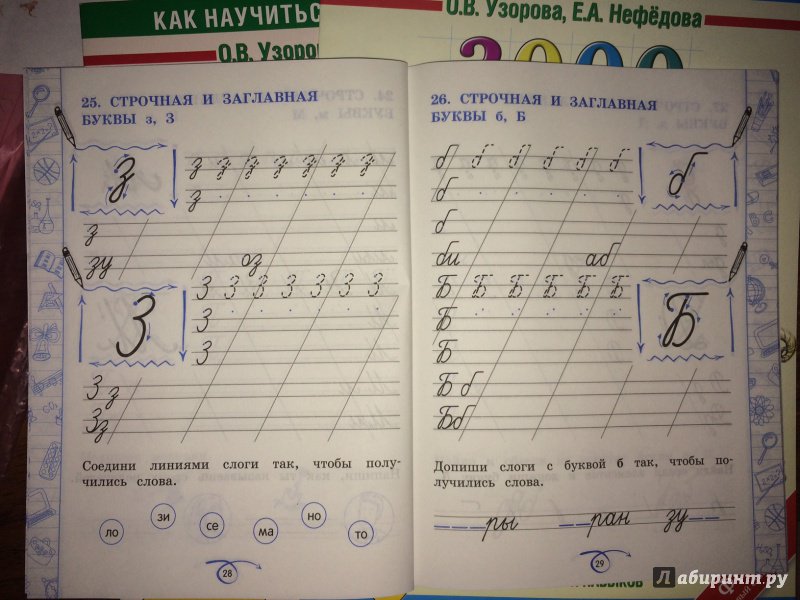 КАК НАУЧИТЬС
О.В. Узоро
О.В. Узорова, Е.А. Нефёдова
3000
25. СТРОЧНАЯ И ЗАГЛАВНАЯ
БУКВЫ з, З
з з з з з з з з
з
з
зу оз
З З З З З З З З
З
З
З з
Зз
Соедини линиями слоги так, чтобы полу-
чились слова.
ло зи се ма но то
28
26. СТРОЧНАЯ И ЗАГЛАВНАЯ
БУКВЫ б, Б
б б б б б б б
б
б
би аб
Б Б Б Б Б Б Б
Б
Б
Б б
Бб
Допиши слоги с буквой б так, чтобы по-
лучились слова.
ры ран зу
29
Лабиринт.ру